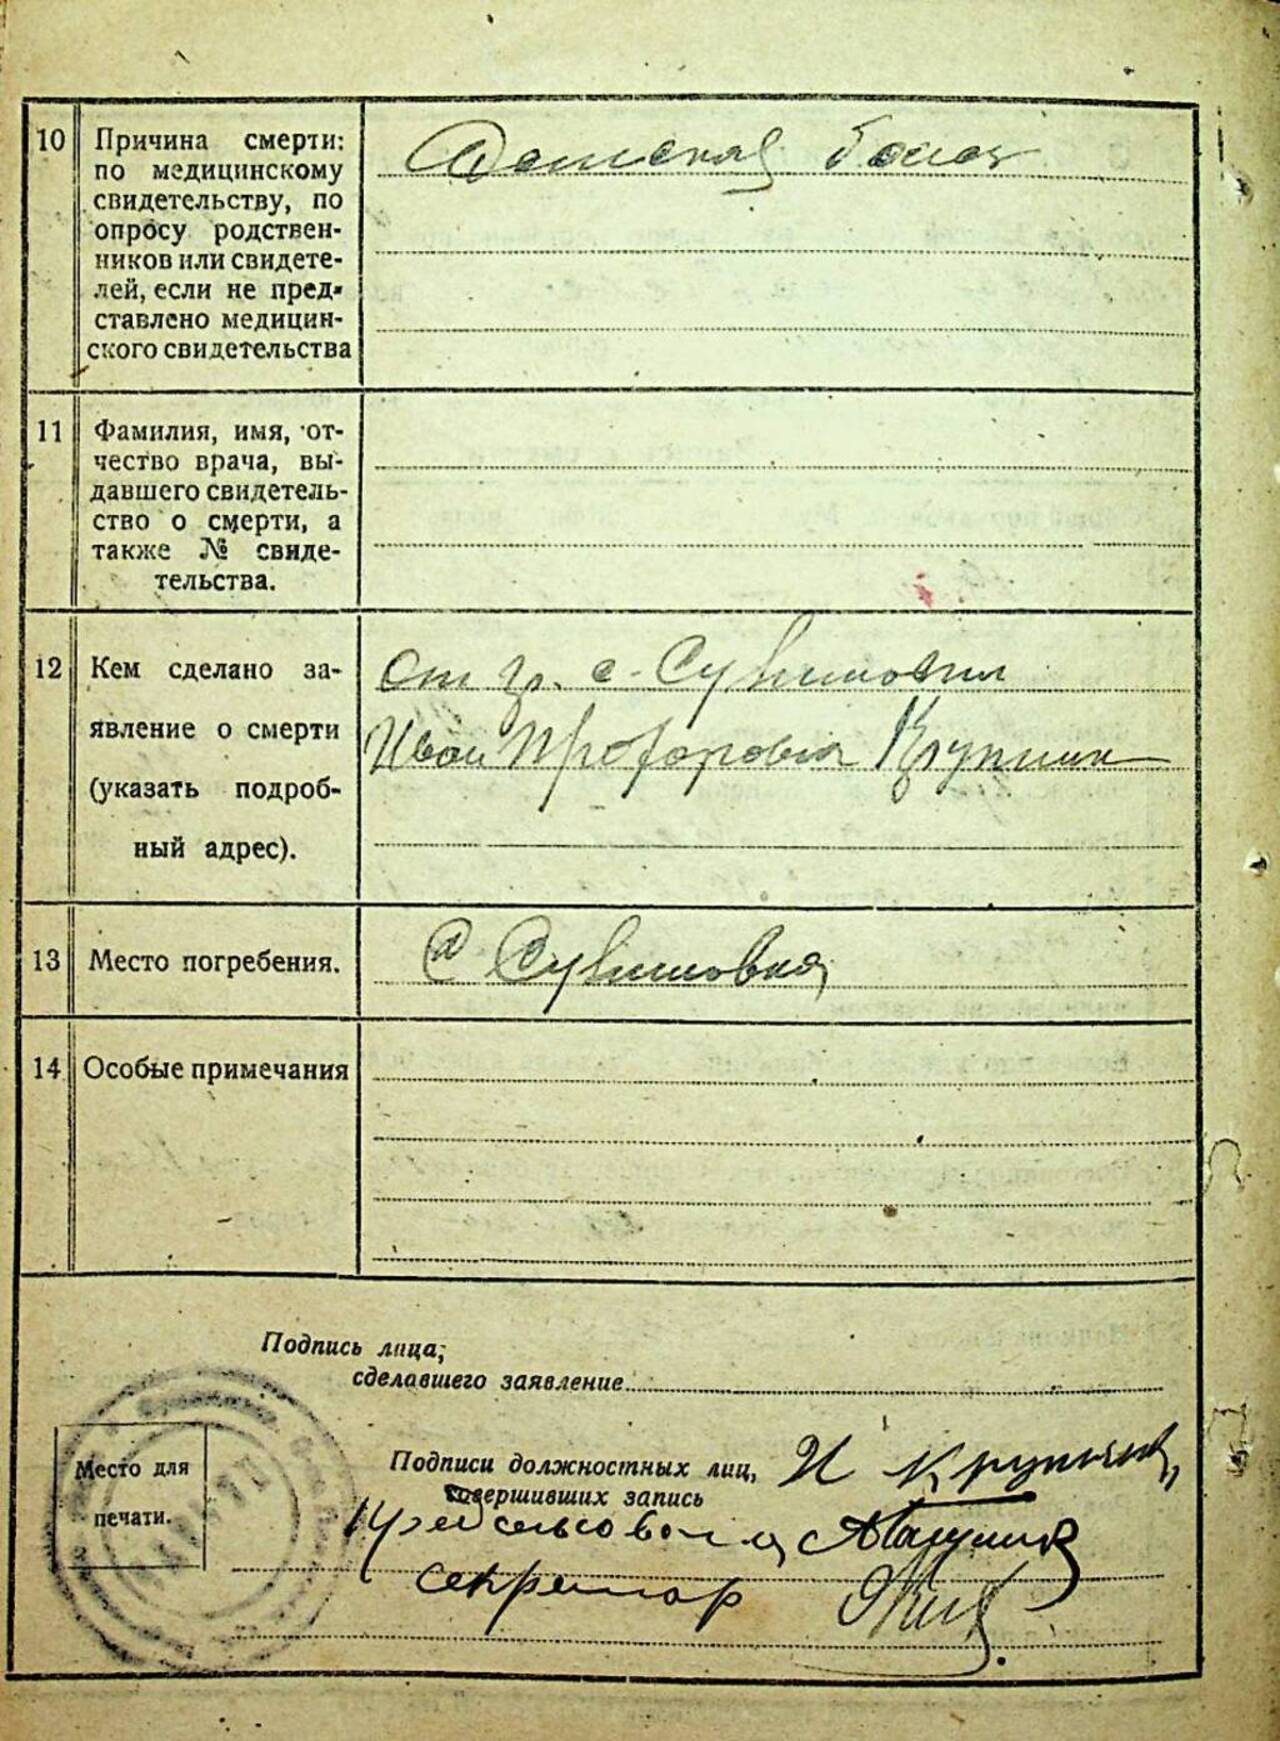 10 Причина смерти:
по медицинскому
свидетельству, по
опросу родствен-
ников или свидете-
лей, если не пред-
ставлено медицин-
ского свидетельства
Детская
11 Фамилия, имя, от-
чество врача, вы-
давшего свидетель-
ство о смерти, а
также № свиде-
тельства.
12 Кем сделано за-
явление о смерти
(указать подроб-
ный адрес).
От гр. с.
Иван Прохорович Крупин
13 Место погребения.
С
14 Особые примечания
Подпись лица,
сделавшего заявление
Место для
печати.
Подписи должностных лиц,
совершивших запись
И
Пред сельсовета
секретар